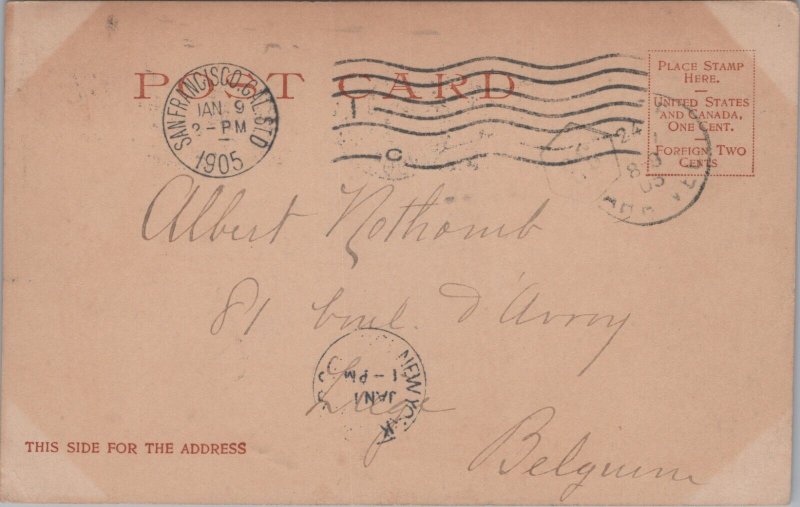 POST CARD
SAN FRANCISCO, CAL. STA. D
JAN 9
3-PM
1905
PLACE STAMP
HERE.
UNITED STATES
AND CANADA,
ONE CENT.
FOREIGN, TWO
CENTS
24
Albert Nothomb
81 boul. d'Avroy
Liege
Belgium
NEW YORK
JAN 1
1-PM
THIS SIDE FOR THE ADDRESS